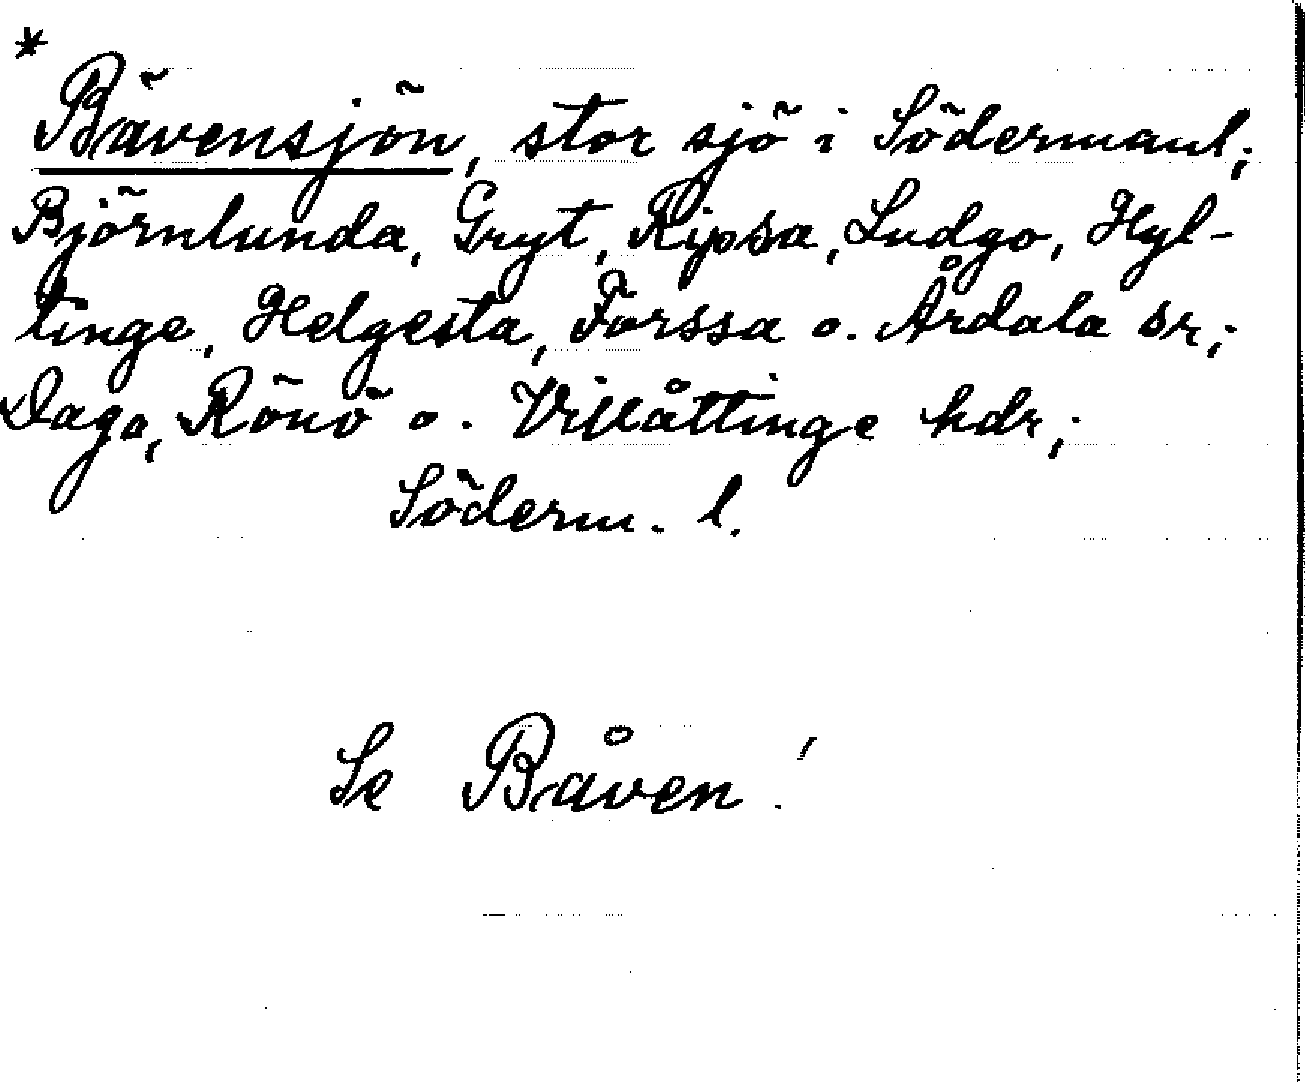 *
Bävensjön, stor sjö i Södermanl;
Björnlunda, Gryt, Ripsa, Ludgo, Hyl-
tinge, Helgesta, Forssa o. Årdala sr;
Daga, Rönö o. Villåttinge hdr;
Söderm. l.
Se Båven!